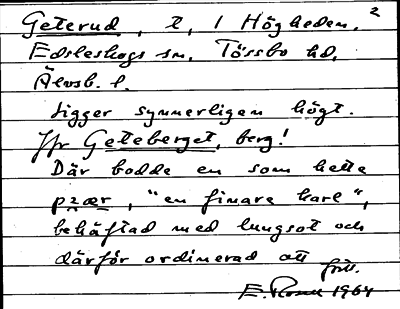 2
Geterud, t, 1 Högheden.
Edsleskogs sn. Tössbo hd.
Älvsb. l.
Ligger synnerligen högt.
Jfr Geteberget, berg!
Där bodde en som hette
pɜær, "en finare karl",
behäftad med lungsot och
därför ordinerad att
E. Rosell 1964